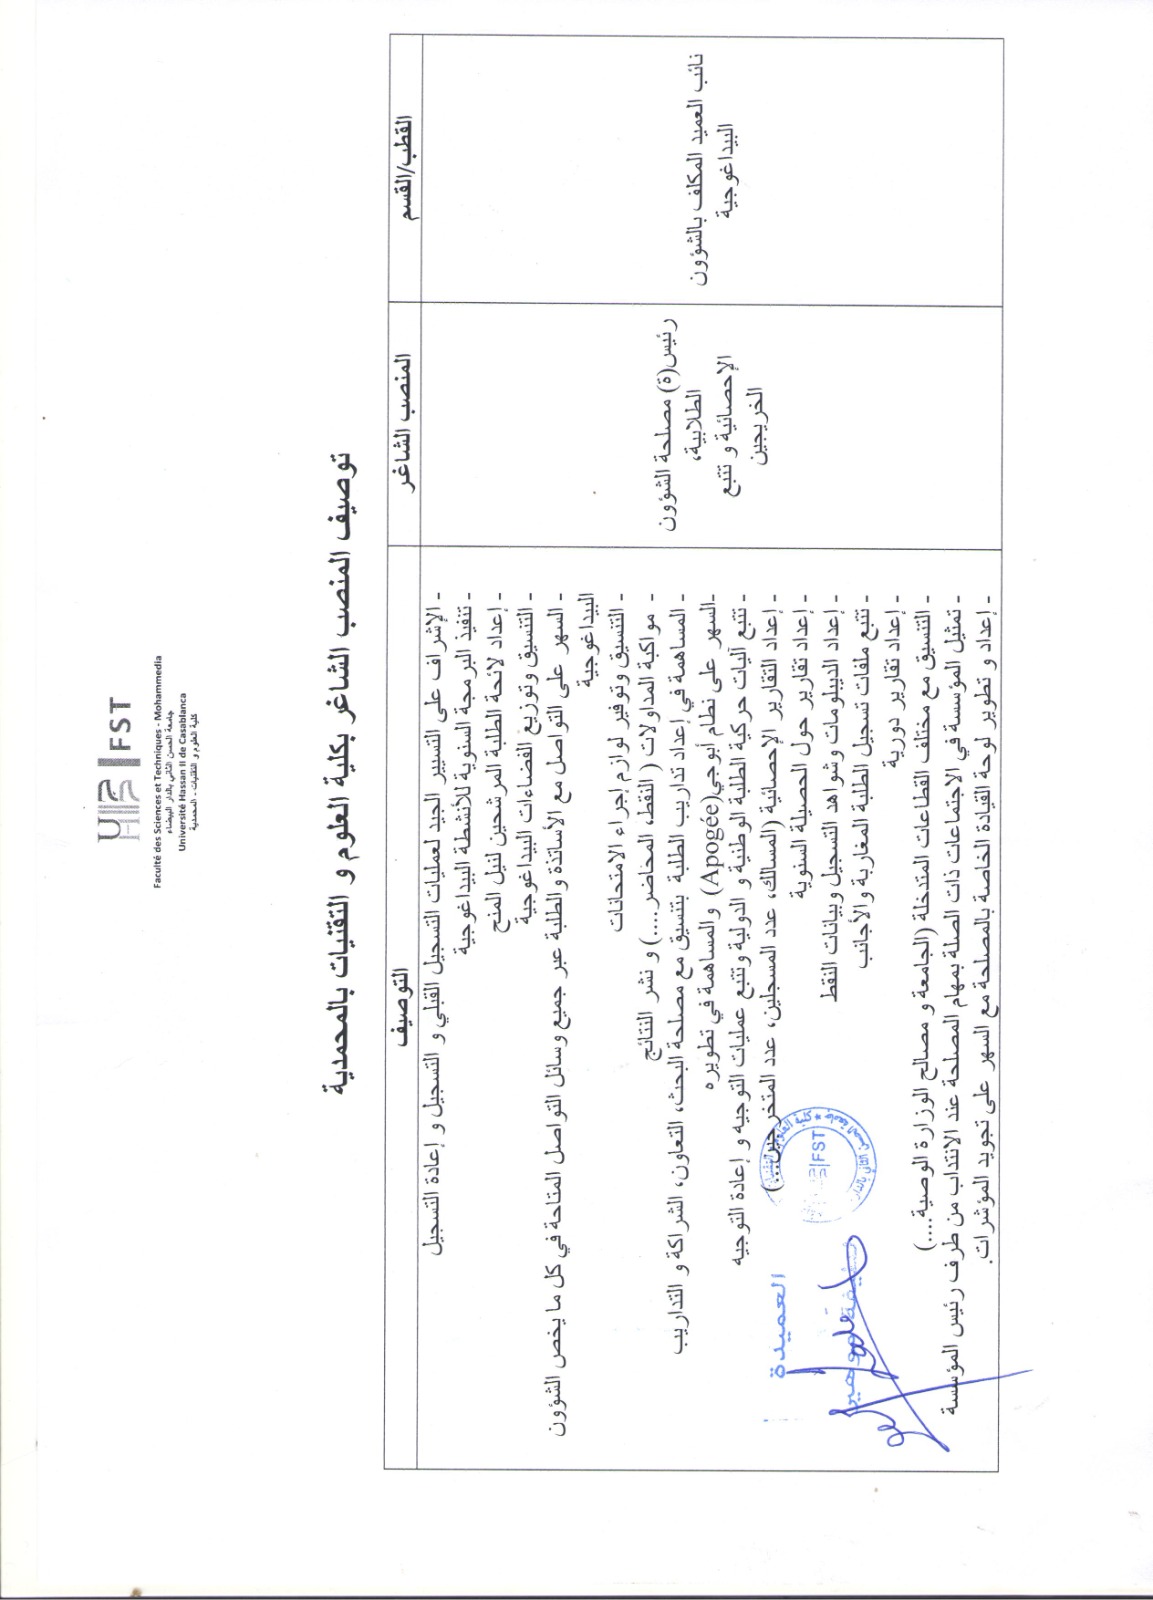 FST
Faculté des Sciences et Techniques - Mohammedia
جامعة الحسن الثاني بالدار البيضاء
Université Hassan II de Casablanca
كلية العلوم و التقنيات - المحمدية
توصيف المنصب الشاغر بكلية العلوم و التقنيات بالمحمدية
القطب/القسم
المنصب الشاغر
التوصيف
نائب العميد المكلف بالشؤون
البيداغوجية
رئيس(ة) مصلحة الشؤون
الطلابية،
الإحصائية و تتبع
الخريجين
- الإشراف على التسيير الجيد لعمليات التسجيل القبلي و التسجيل و إعادة التسجيل
- تنفيذ البرمجة السنوية للأنشطة البيداغوجية
- إعداد لائحة الطلبة المرشحين لنيل المنح
- التنسيق وتوزيع الفضاءات البيداغوجية
- السهر على التواصل مع الأساتذة والطلبة عبر جميع وسائل التواصل المتاحة في كل ما يخص الشؤون
البيداغوجية
- التنسيق وتوفير لوازم إجراء الامتحانات
- مواكبة المداولات ( النقط، المحاضر....) و نشر النتائج
- المساهمة في إعداد تداريب الطلبة بتنسيق مع مصلحة البحث، التعاون، الشراكة و التداريب
-السهر على نظام أبوجي(Apogée) والمساهمة في تطويره
- تتبع آليات حركية الطلبة الوطنية و الدولية وتتبع عمليات التوجيه و إعادة التوجيه
- إعداد التقارير الإحصائية (المسالك، عدد المسجلين، عدد المتخرجين...)
- إعداد تقارير حول الحصيلة السنوية
- إعداد الديبلومات وشواهد التسجيل وبيانات النقط
- تتبع ملفات تسجيل الطلبة المغاربة والأجانب
- إعداد تقارير دورية
- التنسيق مع مختلف القطاعات المتدخلة (الجامعة و مصالح الوزارة الوصية....)
- تمثيل المؤسسة في الاجتماعات ذات الصلة بمهام المصلحة عند الانتداب من طرف رئيس المؤسسة
- إعداد و تطوير لوحة القيادة الخاصة بالمصلحة مع السهر على تجويد المؤشرات.
العميدة
FST